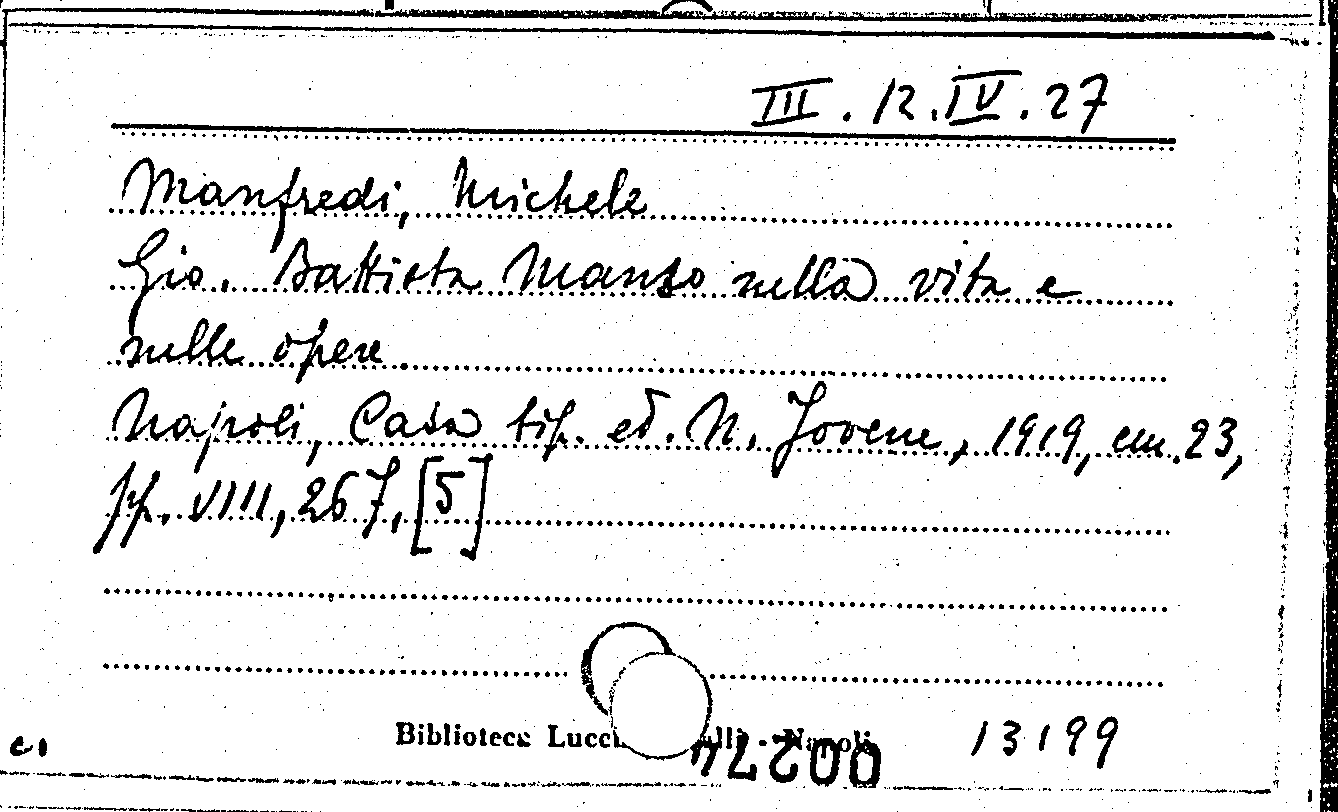 III. 12. IV. 27
Manfredi, Michele
Gio. Battista Manso nella vita e
nelle opere
Napoli, Casa tip. ed. N. Jovene, 1919, cm. 23,
pp. VIII, 267, [5]
Biblioteca Lucch - Napoli
13199